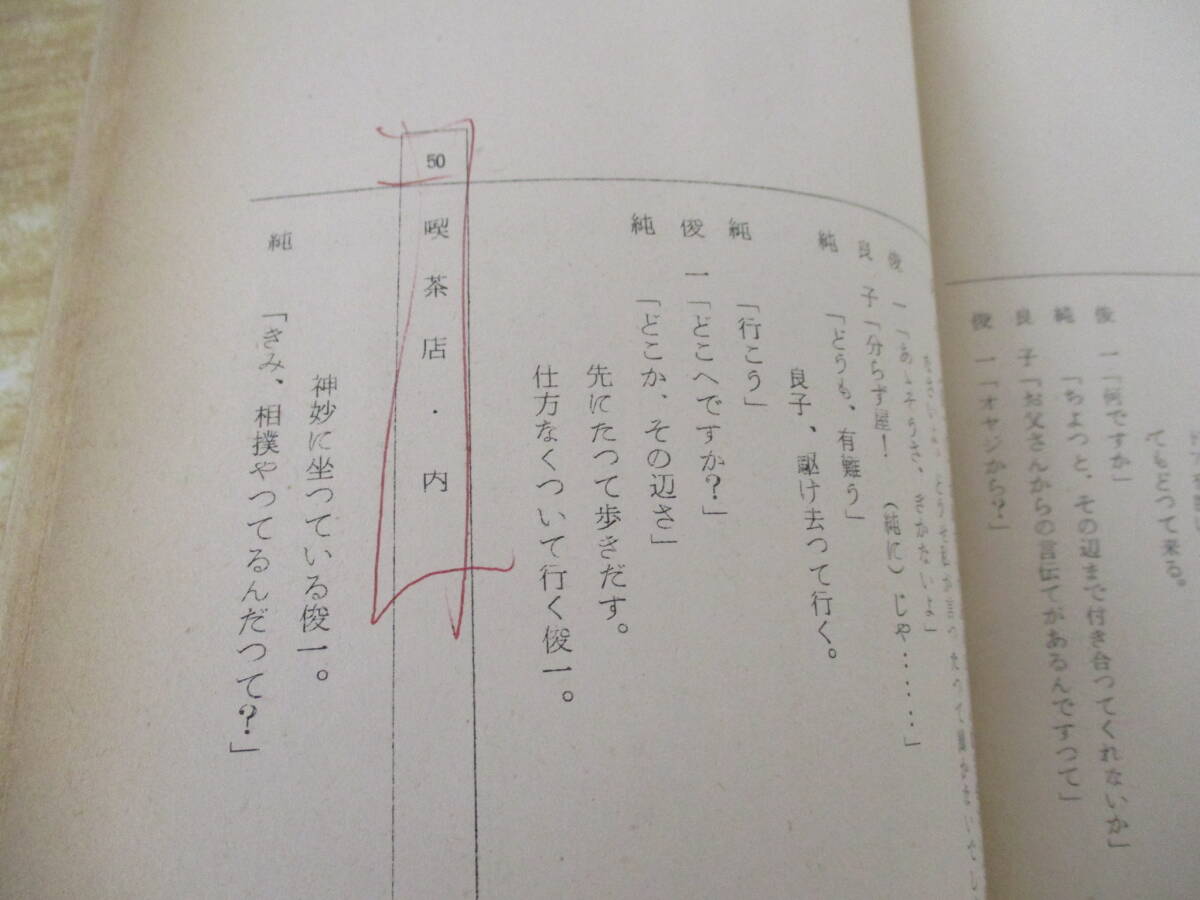 てもとつて来る。
俊一「何ですか」
純「ちよつと、その辺まで付き合つてくれないか」
良子「お父さんからの言伝てがあるんですつて」
俊一「オヤジから?」
俊一「あゝそうさ、きかないよ」
良子「分らず屋! (純に)じや‥‥‥‥」
純「どうも、有難う」
良子、駆け去つて行く。
純「行こう」
俊一「どこへですか?」
純「どこか、その辺さ」
先にたつて歩きだす。
仕方なくついて行く俊一。
50 喫茶店・内
神妙に坐つている俊一。
純「きみ、相撲やつてるんだつて?」